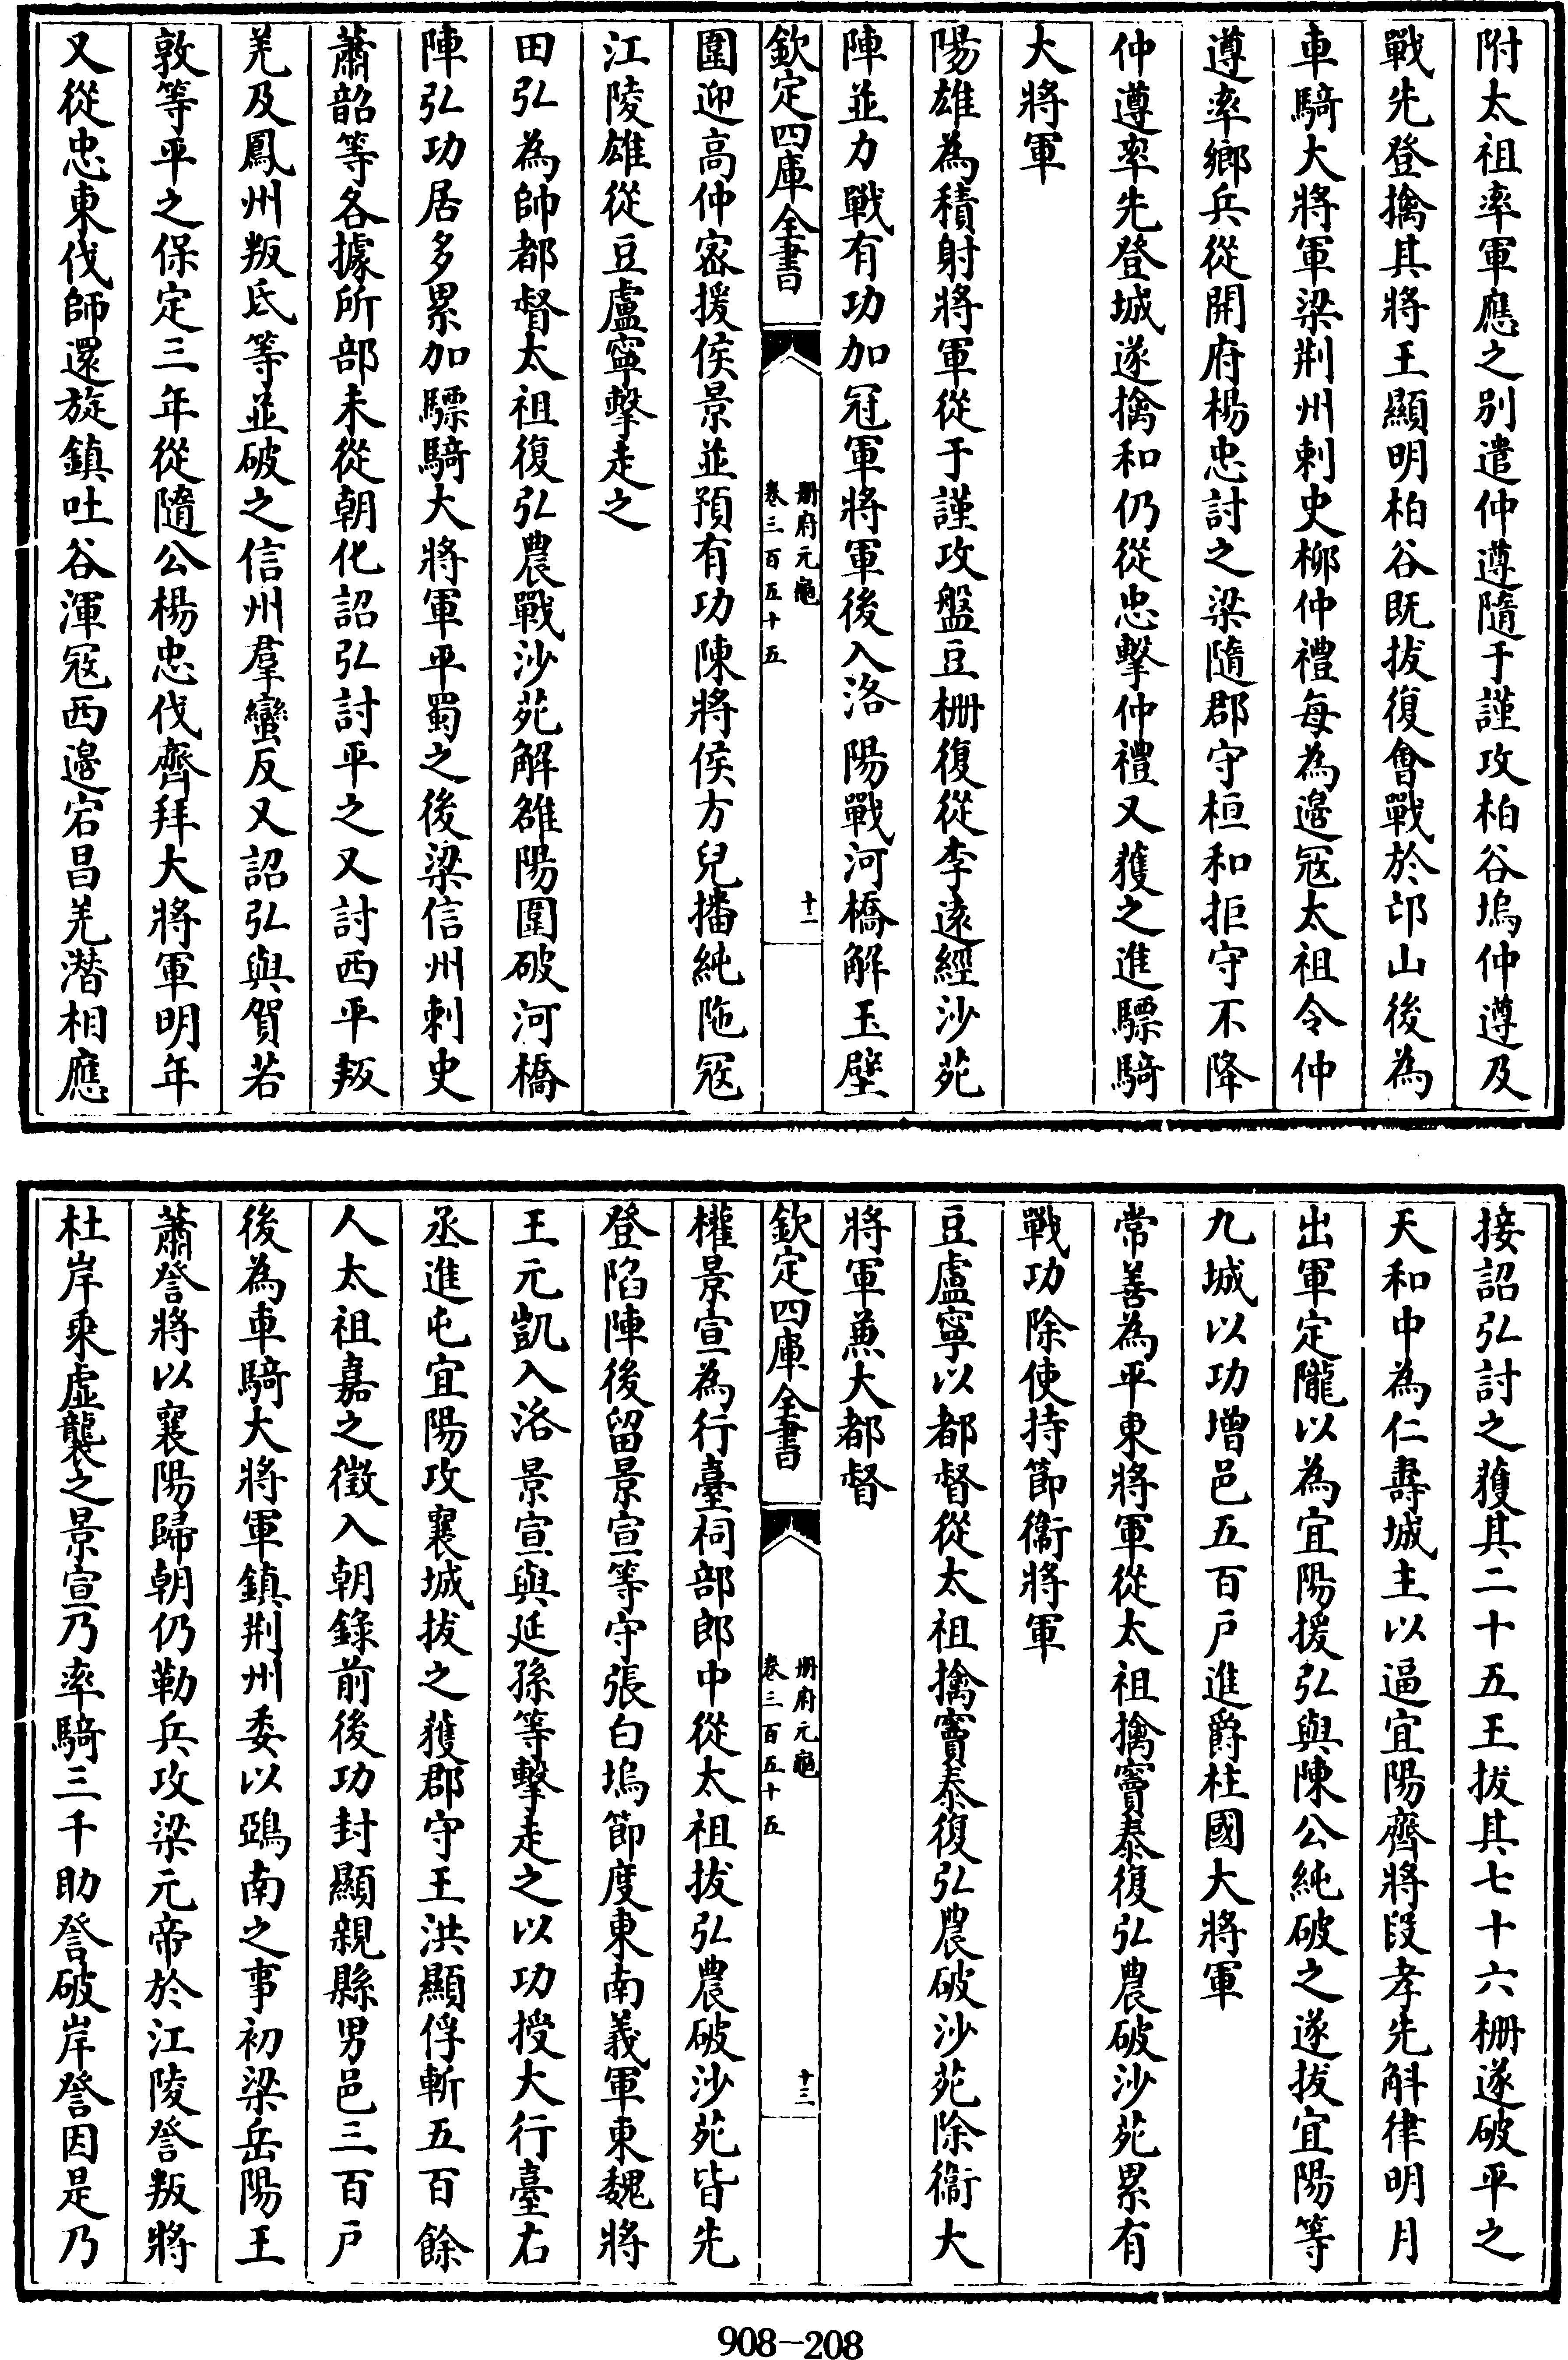 附太祖率軍應之别遣仲遵隨于謹攻柏谷塢仲遵及
戰先登擒其將王顯明柏谷既拔復會戰於邙山後為
車騎大將軍梁荆州刺史柳仲禮每為邊冦太祖令仲
遵率鄉兵從開府楊忠討之梁隨郡守桓和拒守不降
仲遵率先登城遂擒和仍從忠擊仲禮又獲之進驃騎
大將軍
陽雄為積射將軍從于謹攻盤豆栅復從李遠經沙苑
陣並力戰有功加冠軍將軍後入洛陽戰河橋解玉壁
欽定四庫全書
册府元龜
卷三百五十五
十二
圍迎高仲宻援侯景並預有功陳將侯方兒播純陁冦
江陵雄從豆盧寧擊走之
田弘為帥都督太祖復弘農戰沙苑解雒陽圍破河橋
陣弘功居多累加驃騎大將軍平蜀之後梁信州刺史
蕭韶等各據所部未從朝化詔弘討平之又討西平叛
羌及鳳州叛氐等並破之信州羣蠻反又詔弘與賀若
敦等平之保定三年從隨公楊忠伐齊拜大將軍明年
又從忠東伐師還旋鎮吐谷渾冦西邊宕昌羌潜相應
接詔弘討之獲其二十五王拔其七十六栅遂破平之
天和中為仁壽城主以逼宜陽齊將段孝先斛律明月
出軍定隴以為宜陽援弘與陳公純破之遂拔宜陽等
九城以功增邑五百戶進爵柱國大將軍
常善為平東將軍從太祖擒竇泰復弘農破沙苑累有
戰功除使持節衞將軍
豆盧寧以都督從太祖擒竇泰復弘農破沙苑除衞大
將軍兼大都督
欽定四庫全書
册府元龜
卷三百五十五
十三
權景宣為行臺祠部郎中從太祖拔弘農破沙苑皆先
登陷陣後留景宣等守張白塢節度東南義軍東魏將
王元凱入洛景宣與延孫等擊走之以功授大行臺右
丞進屯宜陽攻襄城拔之獲郡守王洪顯俘斬五百餘
人太祖嘉之徵入朝錄前後功封顯親縣男邑三百戶
後為車騎大將軍鎮荆州委以鵶南之事初梁岳陽王
蕭詧將以襄陽歸朝仍勒兵攻梁元帝於江陵詧叛將
杜岸乘虚襲之景宣乃率騎三千助詧破岸詧因是乃
908-208